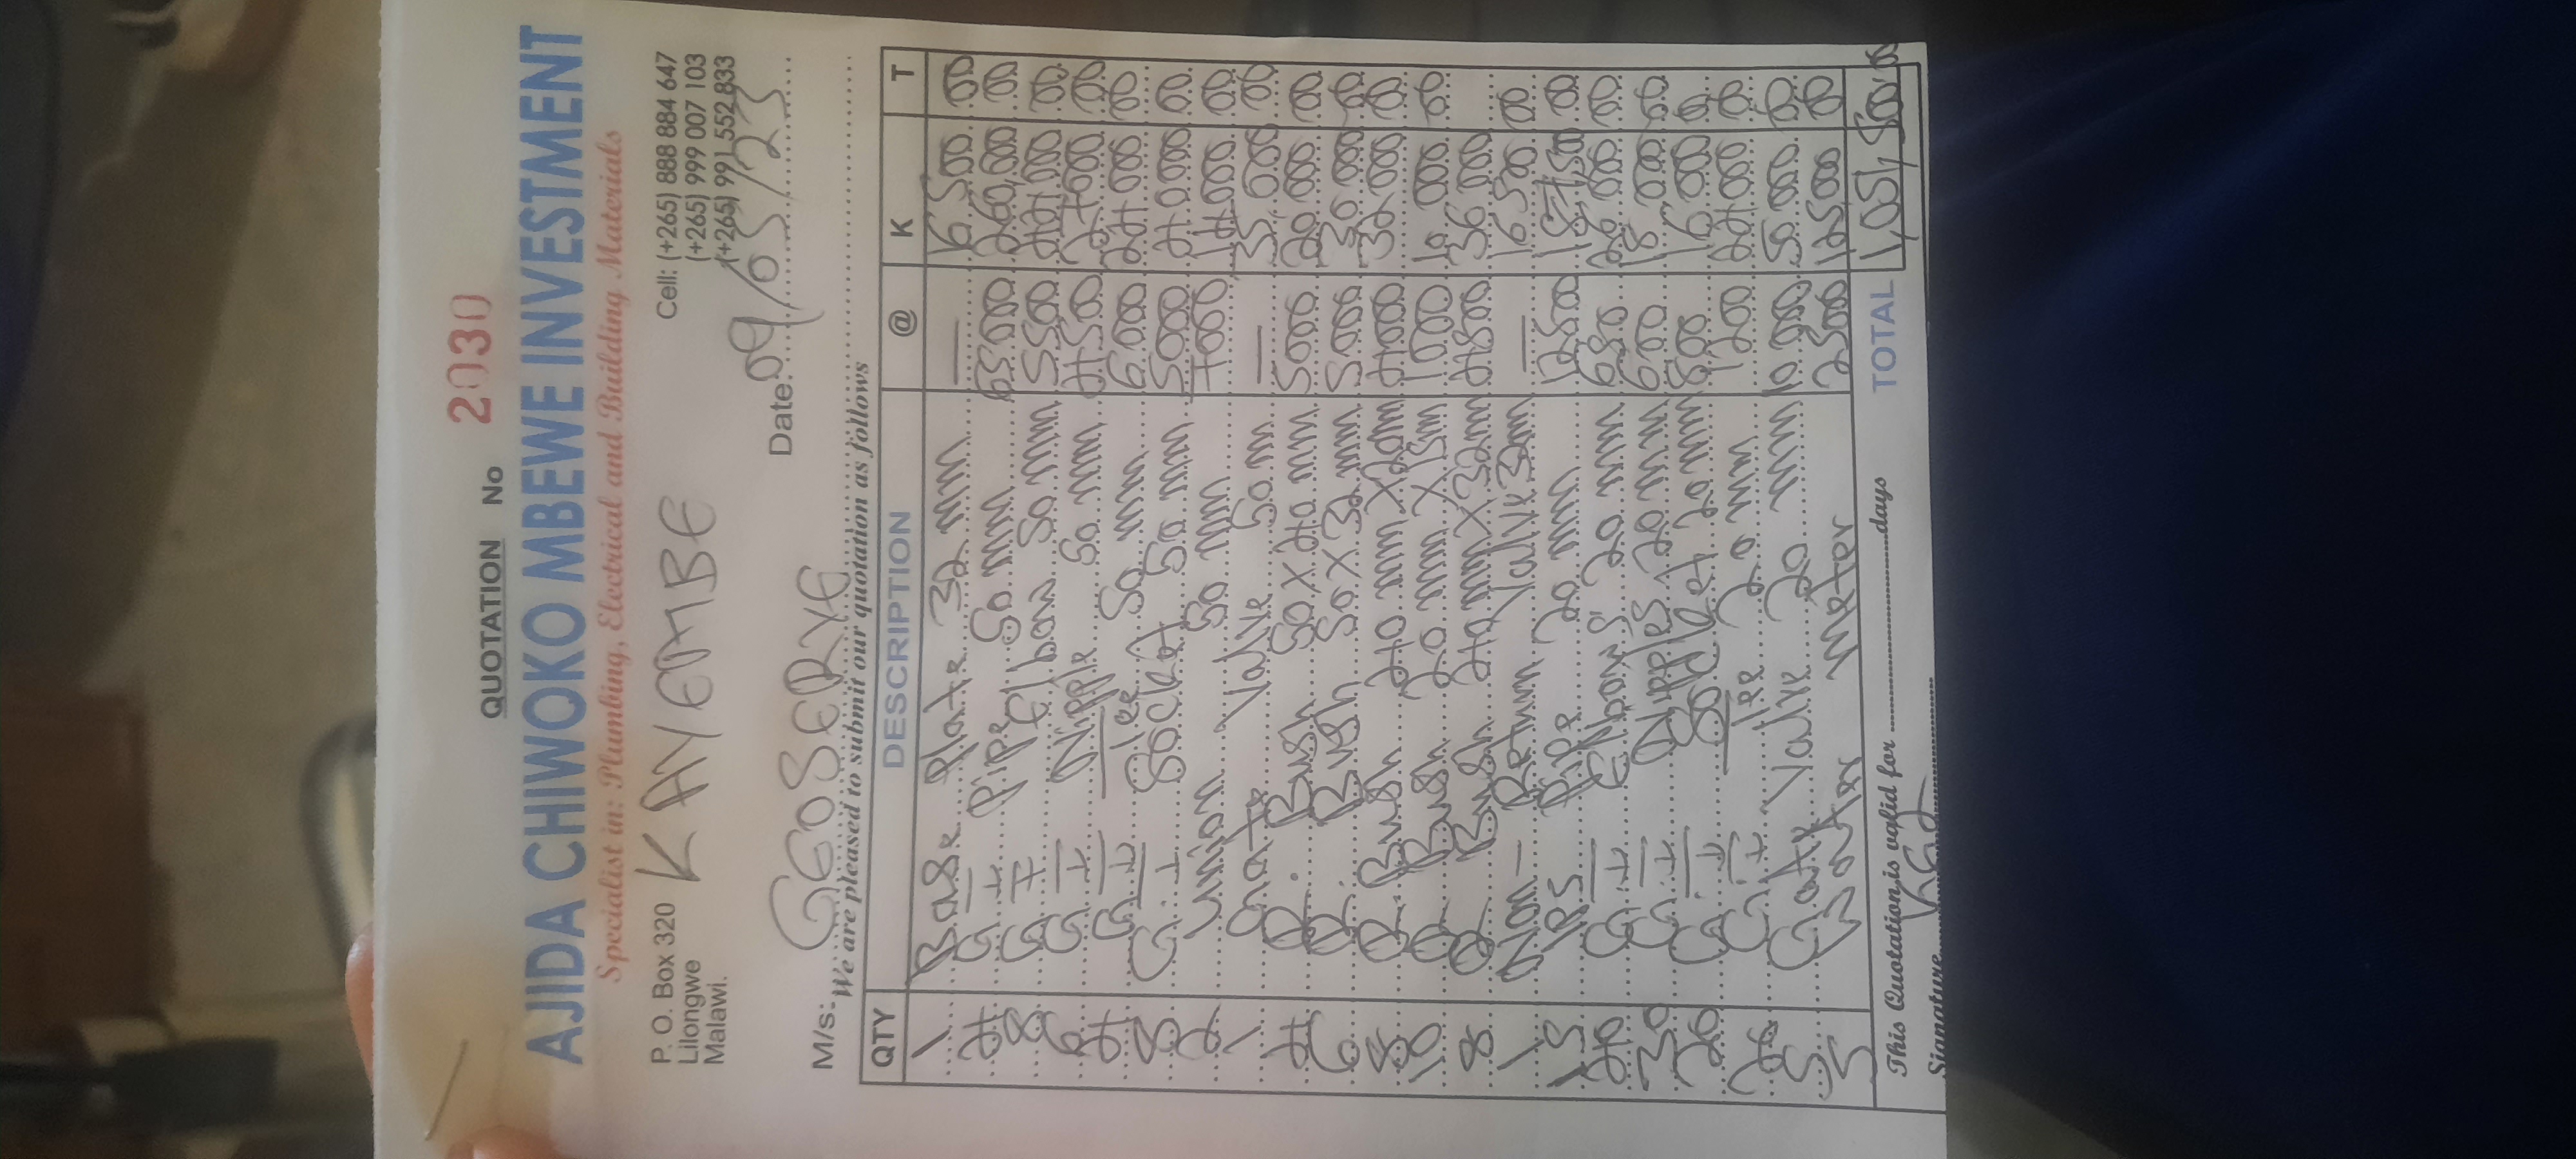 QUOTATION No 2030
AJIDA CHIWOKO MBEWE INVESTMENT
Specialist in: Plumbing, Electrical and Building Materials
P. O. Box 320
Lilongwe
Malawi.
KAYEMBE
Cell: (+265) 888 884 647
(+265) 999 007 103
(+265) 991 552 833
Date: 09/05/23
M/s: GEOSERVE
We are pleased to submit our quotation as follows
QTY DESCRIPTION @ K T
1 Base Plate 32 mm — 16 500 00
4 G.I Pipe 50 mm 65000 260,000 00
8 G.I Elbow 50 mm 5500 44000 00
6 G.I Nipple 50 mm 4500 27000 00
4 G.I Tee 50 mm 6000 24000 00
8 G.I Socket 50 mm 5000 40000 00
2 Union 50 mm 7000 14000 00
1 Gate Valve 50 m — 35,000 00
4 R. Bush 50 X 40 mm 5000 20.000 00
6 R. Bush 50 X 32 mm 5000 30 000 00
8 R. Bush 40 mm X 20m 4000 32000 00
10 R Bush 20 mm X 15m 1000 10 000 00
8 R Bush 40 mm X 32m 4500 36 000
1 Non - Return Valve 32m — 16500 00
15 IPS Pipe 20 mm 12500 187,500 00
40 G.I Elbows 20 mm 650 26 000 00
30 G.I Nipples 20 mm 600 18 000 00
20 G.I Socket 20 mm 800 16000 0
20 G.I Tee 20 mm 1200 24000 00
5 Gate Valve 20 mm 10 000 50.000 00
5 Water meter 25000 125000 00
This Quotation is valid for days TOTAL 1,051,500.00
Signature